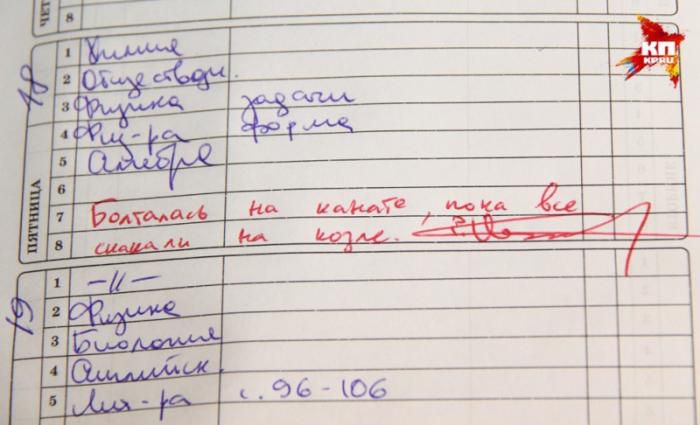 ЧЕТ
8
КП
КРЯЦ
18
ПЯТНИЦА
1 Химия
2 Обществозн.
3 Физика задачи
4 Физ-ра форма
5 Алгебра
6
7 Болталась на канате, пока все
8 скакали на козле.
19
1 –//–
2 Физика
3 Биология
4 Английск.
5 Лит-ра с. 96-106